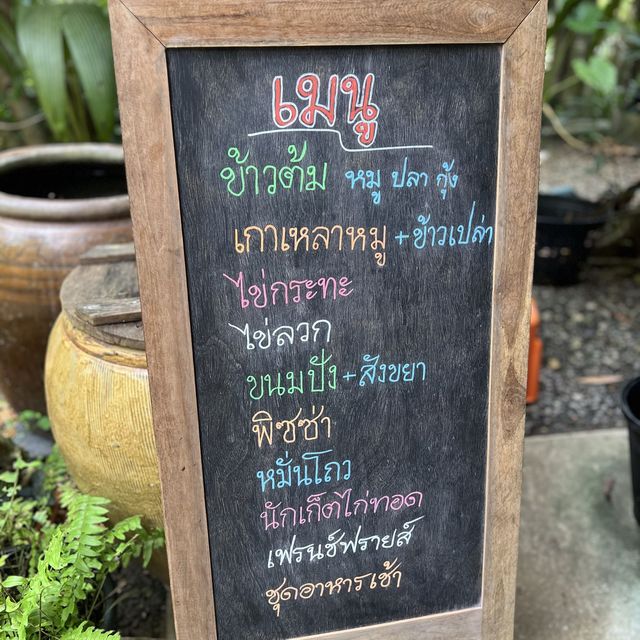 เมนู
ข้าวต้ม หมู ปลา กุ้ง
เกาเหลาหมู +ข้าวเปล่า
ไข่กระทะ
ไข่ลวก
ขนมปัง +สังขยา
พิซซ่า
หมั่นโถว
นักเก็ตไก่ทอด
เฟรนช์ฟรายส์
ชุดอาหารเช้า